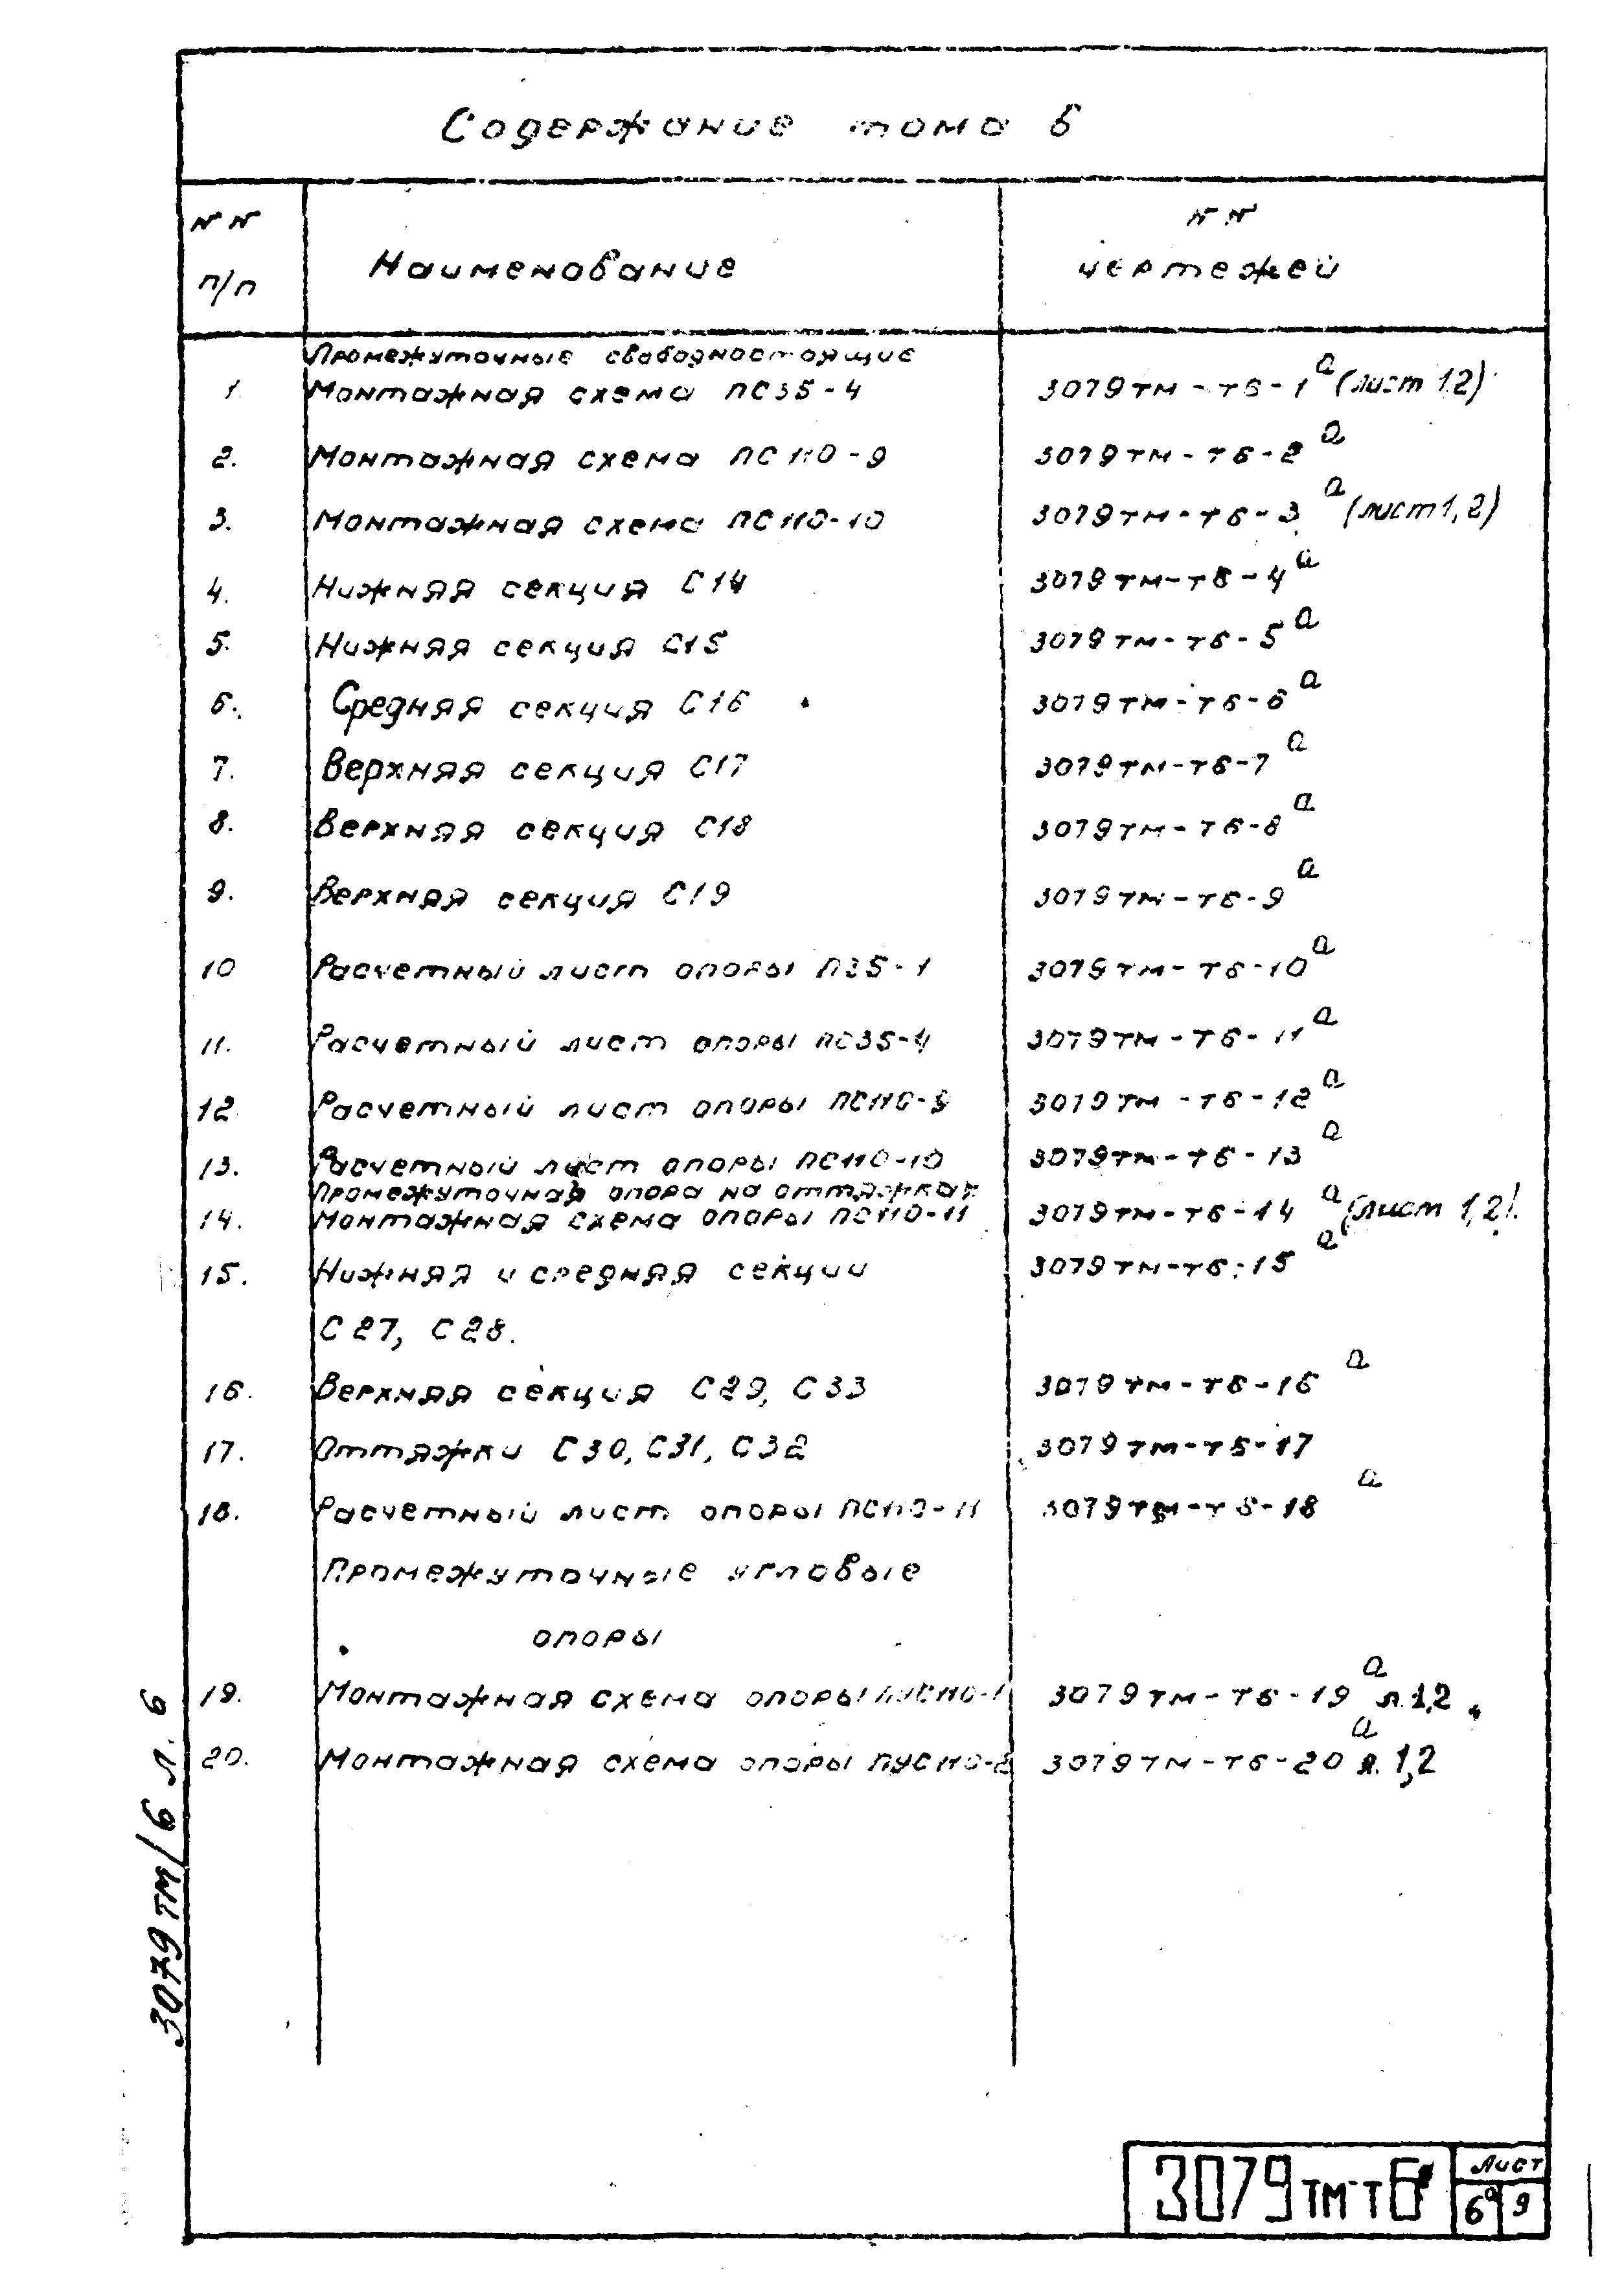 Содержание тома 6
№№ п/п
Наименование
№№ чертежей
Промежуточные свободностоящие
1. Монтажная схема ПС35-4 3079тм-т6-1а (лист 1,2)
2. Монтажная схема ПС110-9 3079тм-т6-2а
3. Монтажная схема ПС110-10 3079тм-т6-3а (лист 1,2)
4. Нижняя секция С14 3079тм-т6-4а
5. Нижняя секция С15 3079тм-т6-5а
6. Средняя секция С16 3079тм-т6-6а
7. Верхняя секция С17 3079тм-т6-7а
8. Верхняя секция С18 3079тм-т6-8а
9. Верхняя секция С19 3079тм-т6-9а
10 Расчетный лист опоры П35-1 3079тм-т6-10а
11. Расчетный лист опоры ПС35-4 3079тм-т6-11а
12 Расчетный лист опоры ПС110-9 3079тм-т6-12а
13. Расчетный лист опоры ПС110-10 3079тм-т6-13а
Промежуточная опора на оттяжках
14. Монтажная схема опоры ПС110-11 3079тм-т6-14а (лист 1,2).
15. Нижняя и средняя секции 3079тм-т6-15а
С27, С28.
16. Верхняя секция С29, С33 3079тм-т6-16а
17. Оттяжки С30, С31, С32 3079тм-т6-17
18. Расчетный лист опоры ПС110-11 3079тм-т6-18а
Промежуточные угловые
опоры
19. Монтажная схема опоры ПУС110-1 3079тм-т6-19а л.1,2
20. Монтажная схема опоры ПУС110-2 3079тм-т6-20а л.1,2
3079тм/6 л. 6
3079тм-т6
Лист
6а 9